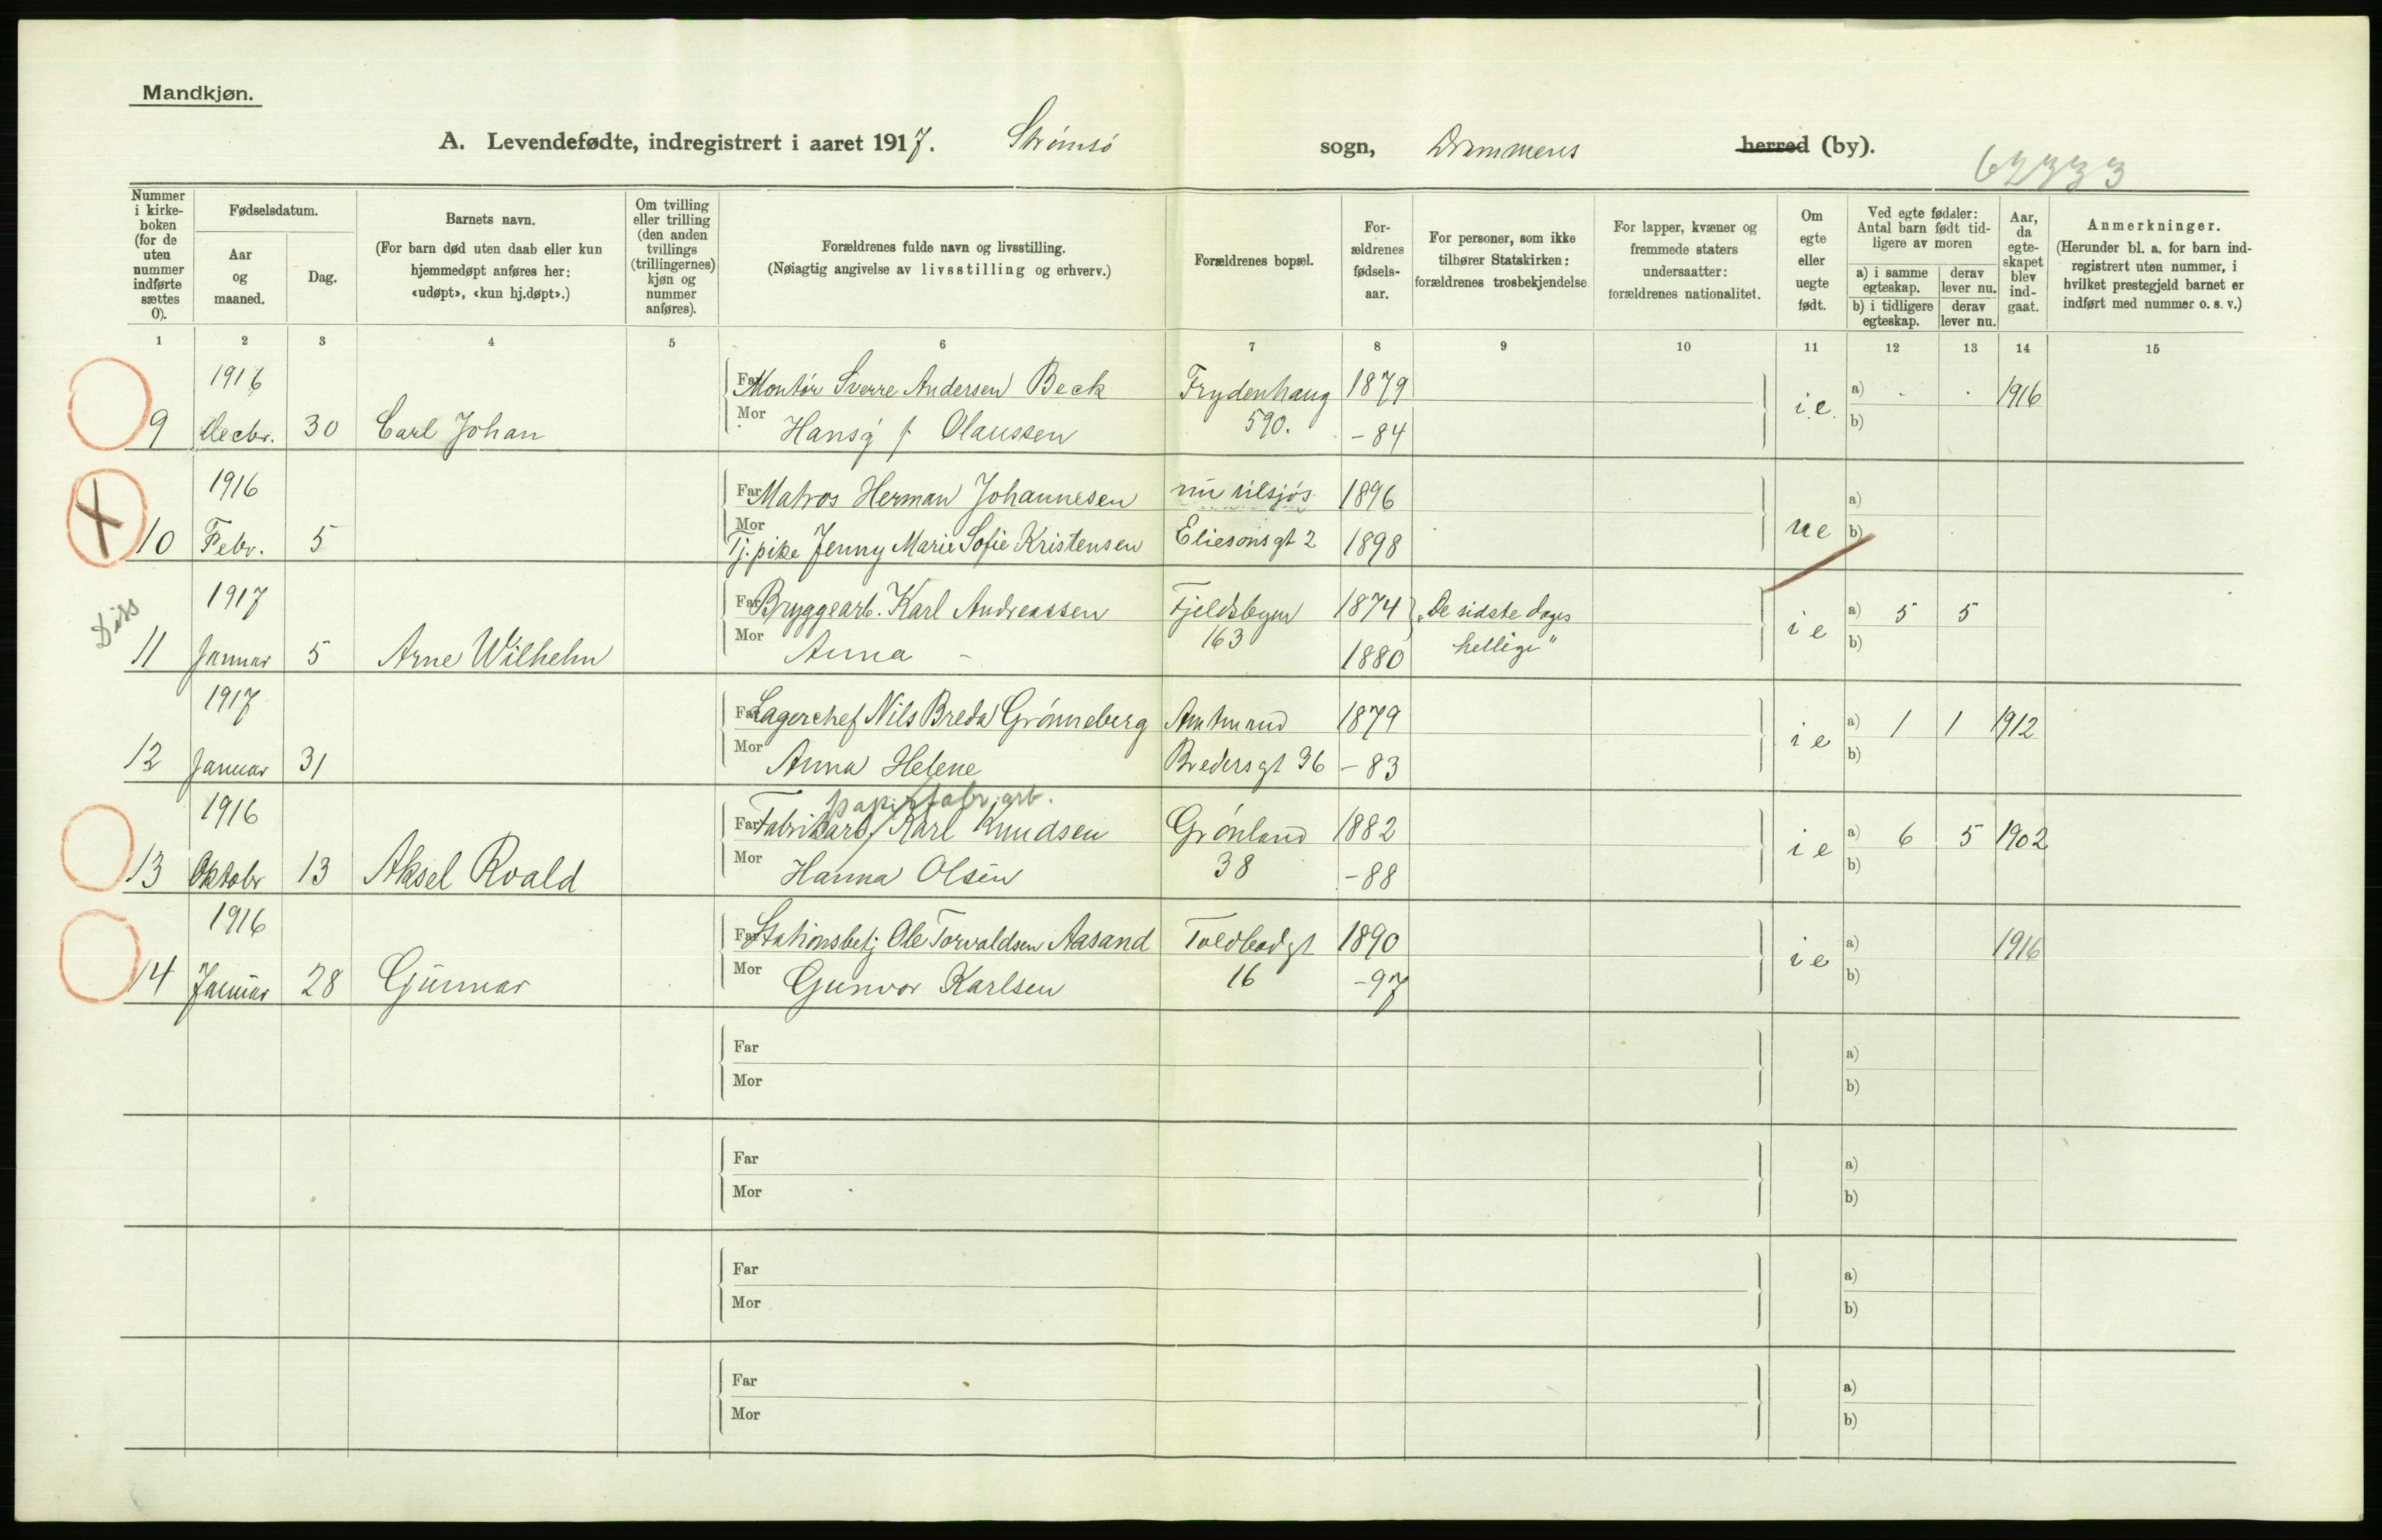 Mandkjøn.
A. Levendefødte, indregistrert i aaret 1917. Strømsø sogn, Drammens herred (by).
62333
Nummer i kirke-boken (for de uten nummer indførte sættes 0).
Fødselsdatum.
Aar og maaned.
Dag.
Barnets navn.
(For barn død uten daab eller kun hjemmedøpt anføres her: «udøpt», «kun hj.døpt».)
Om tvilling eller trilling (den anden tvillings (trillingernes) kjøn og nummer anføres).
Forældrenes fulde navn og livsstilling.
(Nøiagtig angivelse av livsstilling og erhverv.)
Forældrenes bopæl.
For-ældrenes fødsels-aar.
For personer, som ikke tilhører Statskirken: forældrenes trosbekjendelse
For lapper, kvæner og fremmede staters undersaatter: forældrenes nationalitet.
Om egte eller uegte født.
Ved egte fødsler: Antal barn født tid-ligere av moren
a) i samme egteskap.
derav lever nu.
b) i tidligere egteskap.
derav lever nu.
Aar, da egte-skapet blev ind-gaat.
Anmerkninger.
(Herunder bl. a. for barn ind-registrert uten nummer, i hvilket prestegjeld barnet er indført med nummer o. s. v.)
1 2 3 4 5 6 7 8 9 10 11 12 13 14 15
1916 Far Montør Sverre Andersen Beck Frydenhaug 1879 a) 1916
9 Decbr. 30 Carl Johan Mor Hansy f. Olaussen 590. -84 i.e. b)
1916 Far Matros Herman Johannesen nu tilsjøs 1896 a)
10 Febr. 5 Mor Tj.pike Jenny Marie Sofie Kristensen Eliesonsgt 2 1898 ue b)
Diss
1917 Far Bryggearb. Karl Andreassen Fjeldsbyen 1874 "De sidste dages a) 5 5
11 Januar 5 Arne Wilhelm Mor Anna - 163 1880 hellige" i e b)
1917 Far Lagerchef Nils Breda Grønneberg Amtmand 1879 a) 1 1 1912
12 Januar 31 Mor Anna Helene Bredersgt 36 -83 i e b)
papirfabr.arb.
1916 Far Fabrikarb. Karl Knudsen Grønland 1882 a) 6 5 1902
13 Oktobr 13 Aksel Roald Mor Hanna Olsen 38 -88 i e b)
1916 Far Stationsbetj Ole Torvaldsen Aasand Toldbodgt 1890 a) 1916
14 Januar 28 Gunnar Mor Gunvor Karlsen 16 -97 i e b)
Far a)
Mor b)
Far a)
Mor b)
Far a)
Mor b)
Far a)
Mor b)